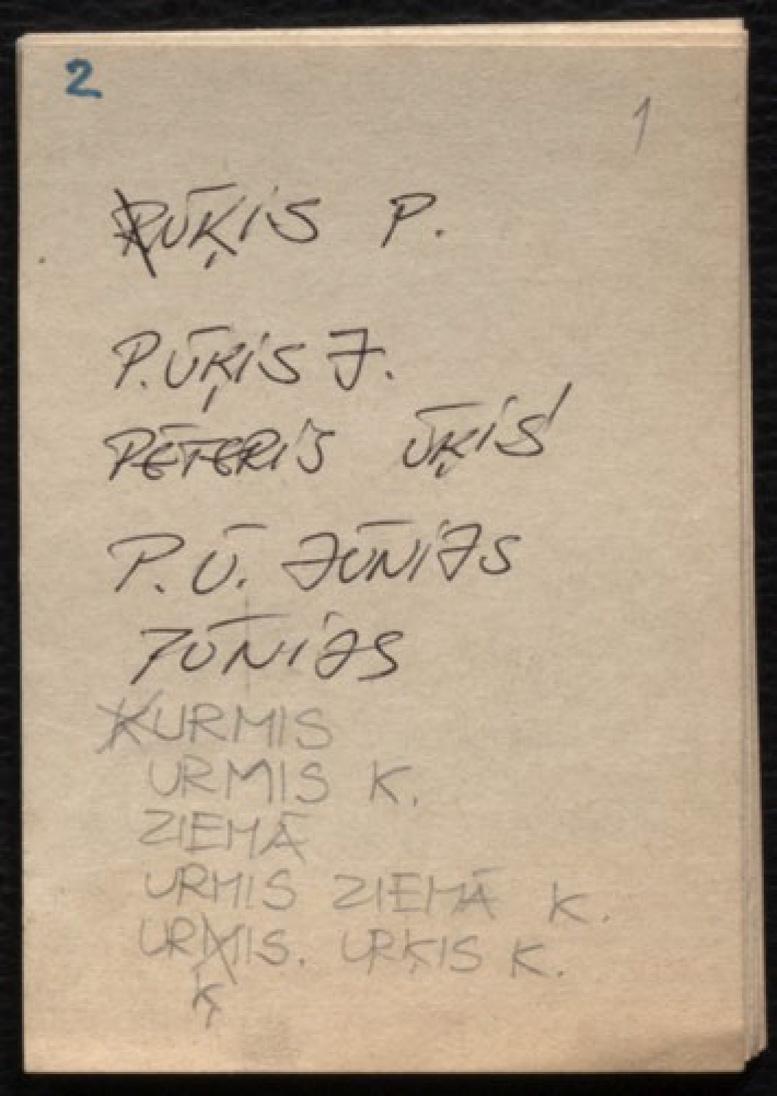 2
1
RŪĶIS P.
P. ŪĶIS J.
PĒTERIS ŪĶIS
P. Ū. JŪNIJS
JŪNIJS
KURMIS
URMIS K.
ZIEMĀ
URMIS ZIEMĀ K.
URMIS. URĶIS K.
Ķ